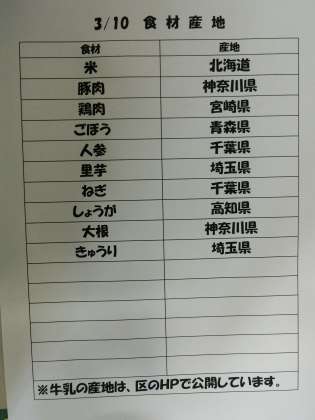 3/10 食材産地
食材 産地
米 北海道
豚肉 神奈川県
鶏肉 宮崎県
ごぼう 青森県
人参 千葉県
里芋 埼玉県
ねぎ 千葉県
しょうが 高知県
大根 神奈川県
きゅうり 埼玉県
※牛乳の産地は、区のHPで公開しています。